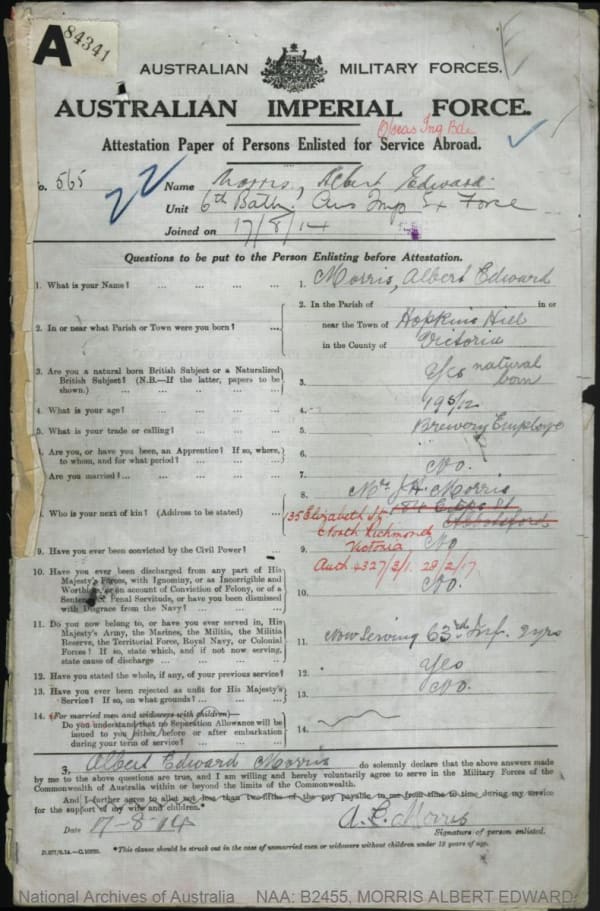 A 84341
AUSTRALIAN MILITARY FORCES.
AUSTRALIAN IMPERIAL FORCE.
O'seas Inf Bde
Attestation Paper of Persons Enlisted for Service Abroad.
o. 565 Name Morris, Albert Edward
22
Unit 6th Battn. Aus Imp Ex Force
Joined on 17/8/14
Questions to be put to the Person Enlisting before Attestation.
1. What is your Name? ... ... ... 1. Morris, Albert Edward
2. In or near what Parish or Town were you born? ... 2. In the Parish of in or
near the Town of Hopkins Hill
in the County of Victoria
3. Are you a natural born British Subject or a Naturalized
British Subject? (N.B.—If the latter, papers to be
shown.) ... ... ... ... 3. Yes natural
born
4. What is your age? ... ... ... 4. 19 5/12
5. What is your trade or calling? ... ... ... 5. Brewery Employe
Are you, or have you been, an Apprentice? If so, where,
to whom, and for what period? ... ... ... 6.
Are you married?... ... ... ... 7. No.
Who is your next of kin? (Address to be stated) ... 8. Mr J H Morris
Abbotsford
135 Elizabeth St
North Richmond
Victoria
Auth 4327/3/1. 28/2/17
9. Have you ever been convicted by the Civil Power? ... 9. No
10. Have you ever been discharged from any part of His
Majesty's Forces, with Ignominy, or as Incorrigible and
Worthless, or on account of Conviction of Felony, or of a
Sentence of Penal Servitude, or have you been dismissed
with Disgrace from the Navy? ... ... ... 10. No.
11. Do you now belong to, or have you ever served in, His
Majesty's Army, the Marines, the Militia, the Militia
Reserve, the Territorial Force, Royal Navy, or Colonial
Forces? If so, state which, and if not now serving,
state cause of discharge ... ... ... 11. Now serving 63rd Inf. 2yrs
12. Have you stated the whole, if any, of your previous service? 12. Yes
13. Have you ever been rejected as unfit for His Majesty's
Service? If so, on what grounds? ... ... ... 13. No.
14. (For married men and widowers with children)—
Do you understand that no Separation Allowance will be
issued to you either before or after embarkation
during your term of service? ... ... ... 14.
I, Albert Edward Morris do solemnly declare that the above answers made
by me to the above questions are true, and I am willing and hereby voluntarily agree to serve in the Military Forces of the
Commonwealth of Australia within or beyond the limits of the Commonwealth.
And I further agree to allot not less than two-fifths of the pay payable to me from time to time during my service
for the support of my wife and children.*
Date 17-8-14 A. E. Morris
Signature of person enlisted.
*This clause should be struck out in the case of unmarried men or widowers without children under 18 years of age.
National Archives of Australia NAA: B2455, MORRIS ALBERT EDWARD